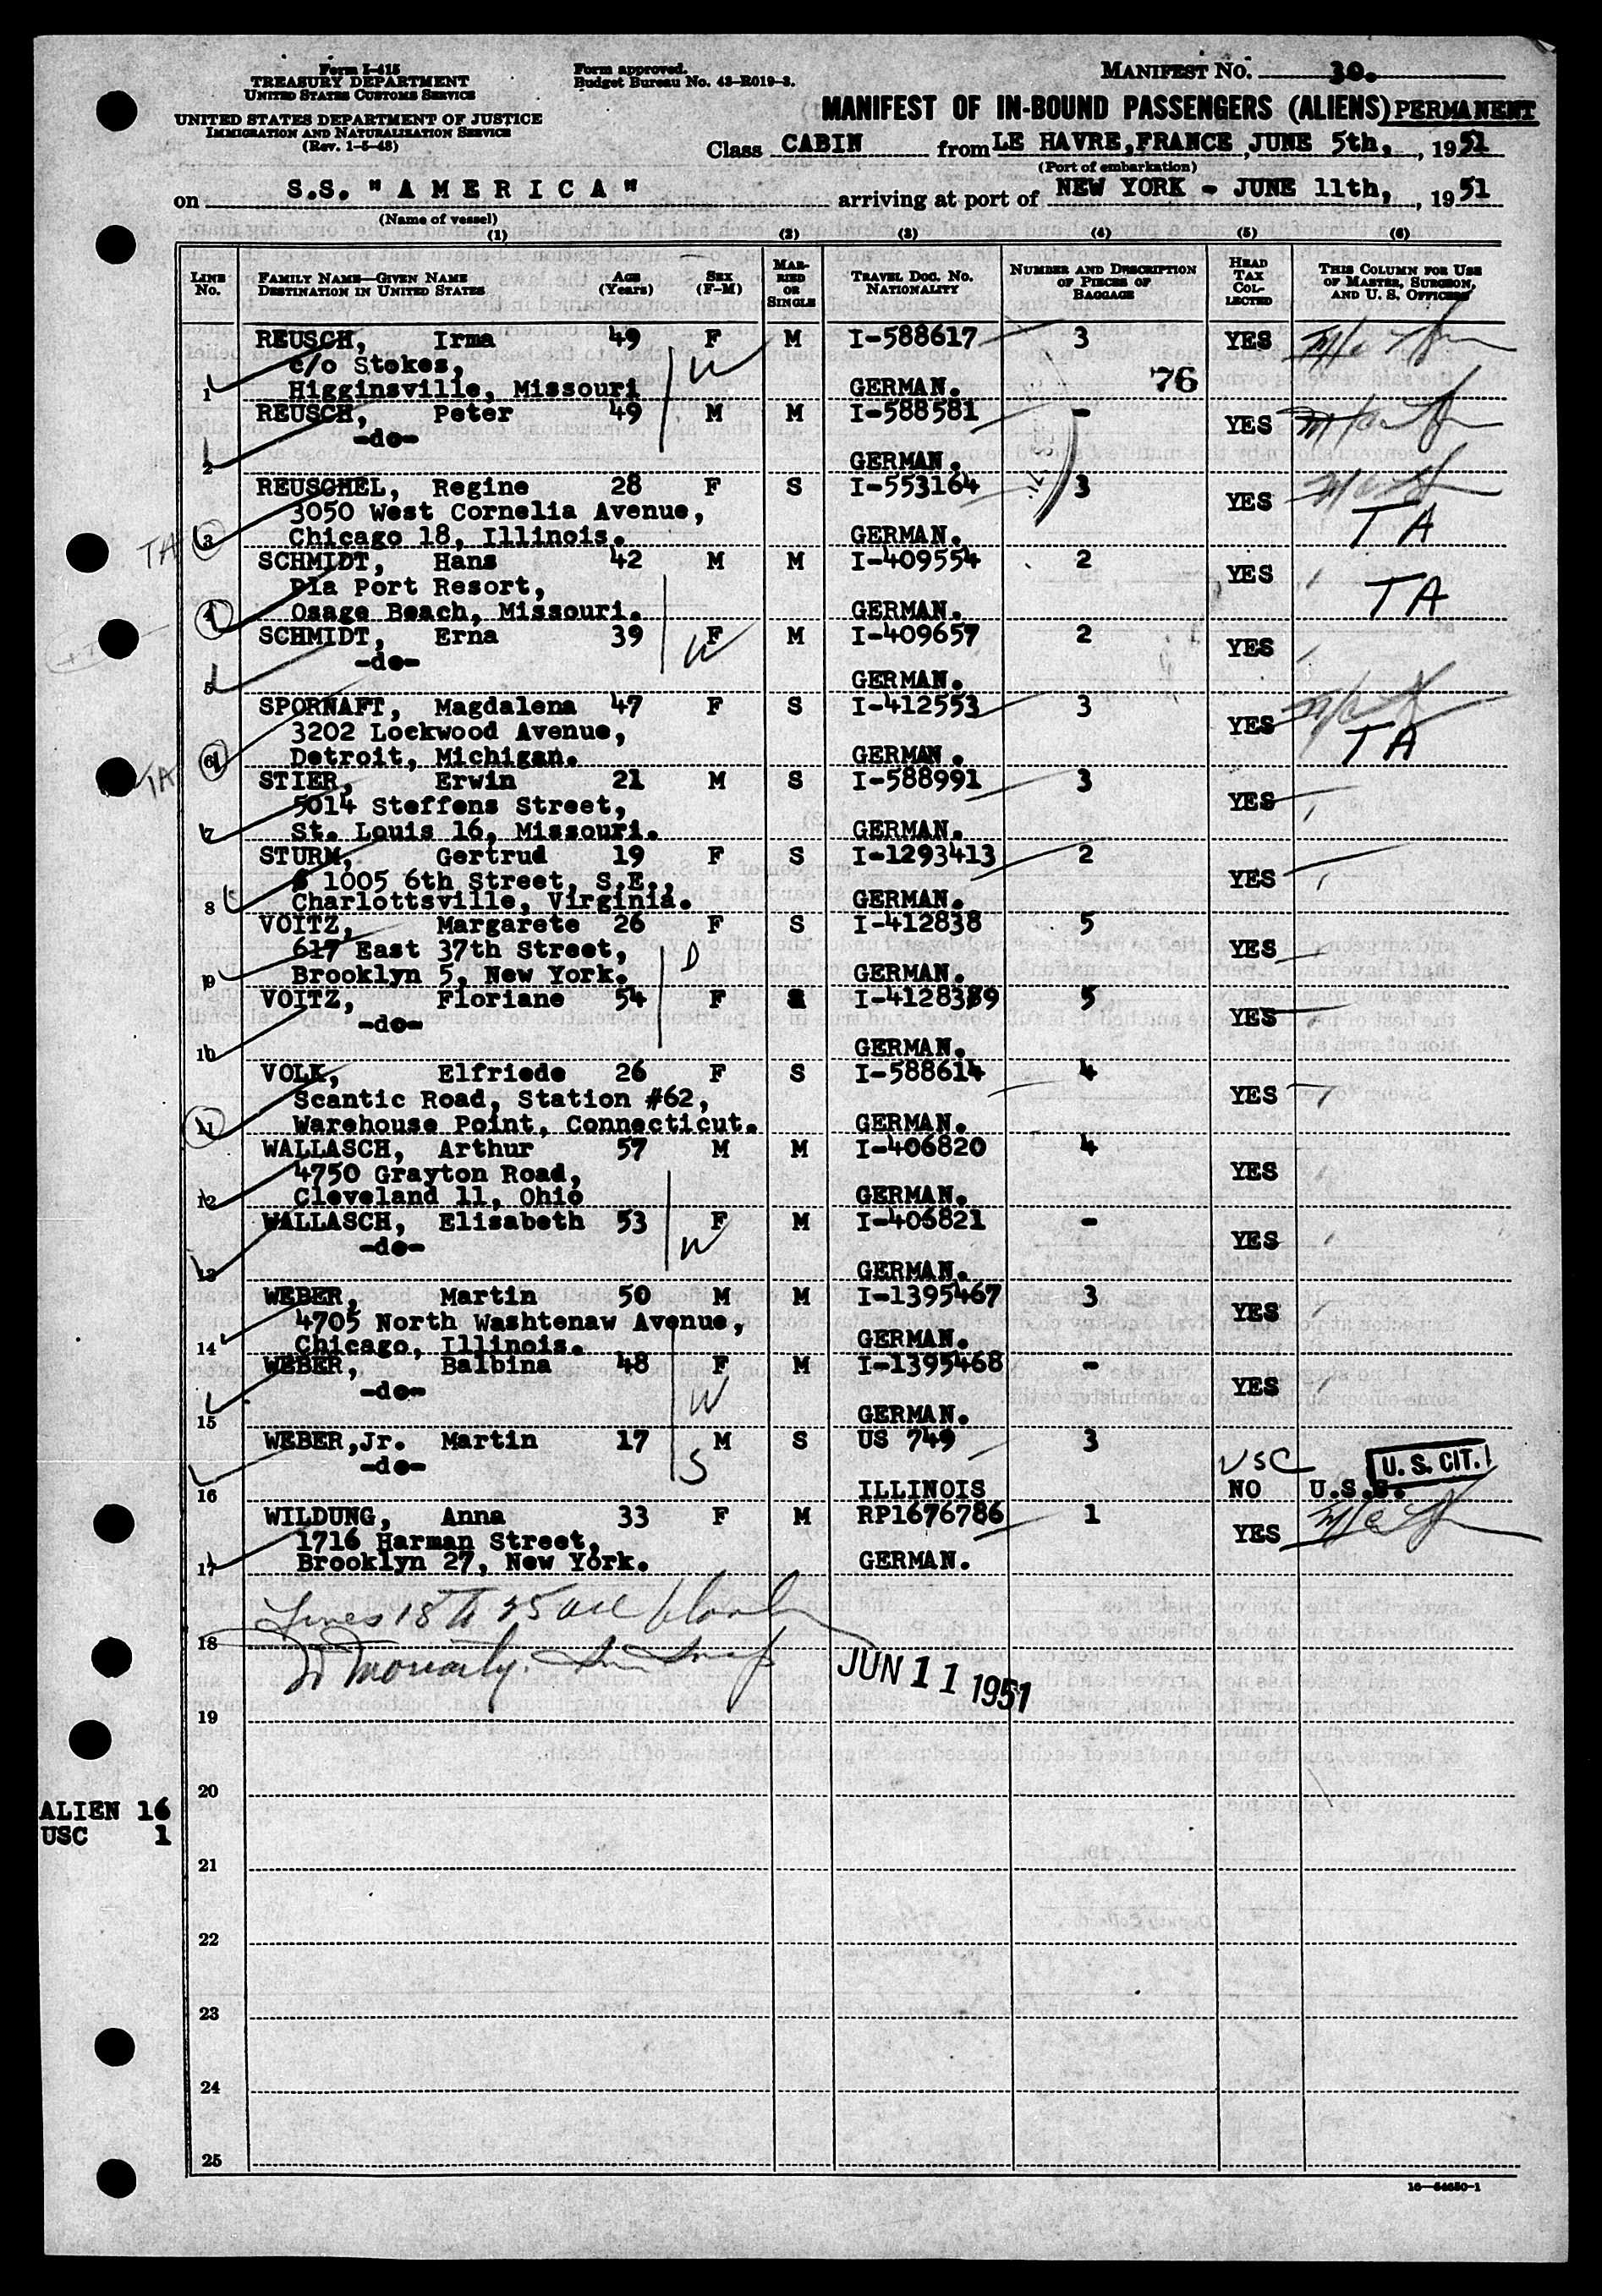 Form I-415
TREASURY DEPARTMENT
UNITED STATES CUSTOMS SERVICE
UNITED STATES DEPARTMENT OF JUSTICE
IMMIGRATION AND NATURALIZATION SERVICE
(Rev. 1-5-48)
Form approved.
Budget Bureau No. 43-R019-3.
MANIFEST NO. 30.
MANIFEST OF IN-BOUND PASSENGERS (ALIENS) PERMANENT
Class CABIN from LE HAVRE, FRANCE, JUNE 5th, , 1951
(Port of embarkation)
on S.S. "A M E R I C A" arriving at port of NEW YORK - JUNE 11th, , 1951
(Name of vessel)
(1) (2) (3) (4) (5) (6)
LINE NO. FAMILY NAME—GIVEN NAME DESTINATION IN UNITED STATES AGE (YEARS) SEX (F-M) MARRIED OR SINGLE TRAVEL DOC. NO. NATIONALITY NUMBER AND DESCRIPTION OF PIECES OF BAGGAGE HEAD TAX COLLECTED THIS COLUMN FOR USE OF MASTER, SURGEON, AND U. S. OFFICERS
REUSCH, Irma 49 F M I-588617 3 YES
c/o Stokes, W
1 Higginsville, Missouri GERMAN. 76
REUSCH, Peter 49 M M I-588581 - YES
-do-
2 GERMAN.
REUSCHEL, Regine 28 F S I-553164 3 YES
3050 West Cornelia Avenue,
TA 3 Chicago 18, Illinois. GERMAN. TA
SCHMIDT, Hans 42 M M I-409554 2 YES
Pla Port Resort,
4 Osage Beach, Missouri. GERMAN. TA
SCHMIDT, Erna 39 F M I-409657 2 YES
-do- W
5 GERMAN.
SPORNAFT, Magdalena 47 F S I-412553 3 YES
3202 Lockwood Avenue,
6 Detroit, Michigan. GERMAN. TA
TA
STIER, Erwin 21 M S I-588991 3 YES
5014 Steffens Street,
7 St. Louis 16, Missouri. GERMAN.
STURM, Gertrud 19 F S I-1293413 2 YES
1005 6th Street, S.E.,
8 Charlottsville, Virginia. GERMAN.
VOITZ, Margarete 26 F S I-412838 5 YES
617 East 37th Street, D
9 Brooklyn 5, New York. GERMAN.
VOITZ, Floriane 54 F I-4128389 5 YES
-do-
10 GERMAN.
VOLK, Elfriede 26 F S I-588614 4 YES
Scantic Road, Station #62,
11 Warehouse Point, Connecticut. GERMAN.
WALLASCH, Arthur 57 M M I-406820 4 YES
4750 Grayton Road,
12 Cleveland 11, Ohio GERMAN.
WALLASCH, Elisabeth 53 F M I-406821 - YES
-do- W
13 GERMAN.
WEBER, Martin 50 M M I-1395467 3 YES
4705 North Washtenaw Avenue,
14 Chicago, Illinois. GERMAN.
WEBER, Balbina 48 F M I-1395468 - YES
-do- W
15 GERMAN.
WEBER, Jr. Martin 17 M S US 749 3 USC U. S. CIT.
-do- S
16 ILLINOIS NO
WILDUNG, Anna 33 F M RP1676786 1 YES
1716 Harman Street,
17 Brooklyn 27, New York. GERMAN.
Lines 18 to 25 all blank
18
Moriarty. JUN 11 1951
19
20
ALIEN 16
USC 1
21
22
23
24
25
16—54650-1